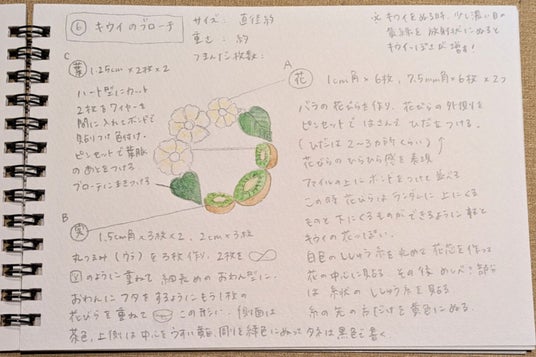 ⑥ キウイのブローチ
サイズ: 直径約
重さ: 約
つまんだ枚数:
※ キウイをぬる時、少し濃い目の
黄緑を放射状にぬると
キウイっぽさが増す!
C
葉 1.25cm×2枚×2
ハート型にカット
2枚をワイヤーを
間に入れてボンドで
貼りつけ色付け。
ピンセットで葉脈
のあとをつける
A
花 1cm角×6枚、7.5mm角×6枚×2つ
バラの花びらを作り、花びらの外側を
ピンセットではさんで ひだをつける。
(ひだは2〜3カ所くらい)
花びらのひらひら感を表現
ファイルの上にボンドをつけて並べる
この時 花びらはランダムに上にくる
ものと下にくるものができるように
キウイの花っぽい。
白色のししゅう糸を丸めて花芯を作って
花の中心に貼る その後 めしべ部分
は 糸状のししゅう糸を貼る
糸の先の方だけを黄色にぬる。
B
実 1.5cm角×3枚×2、2cm×3枚
丸つまみ(ウラ)を3枚作り、2枚を
のように重ねて 細ためのおわん型に。
おわんにフタをするようにもう1枚の
花びらを重ねて この形に。側面は
茶色、上側は中心をうすい黄、周りを緑色にぬって タネは黒色で書く。